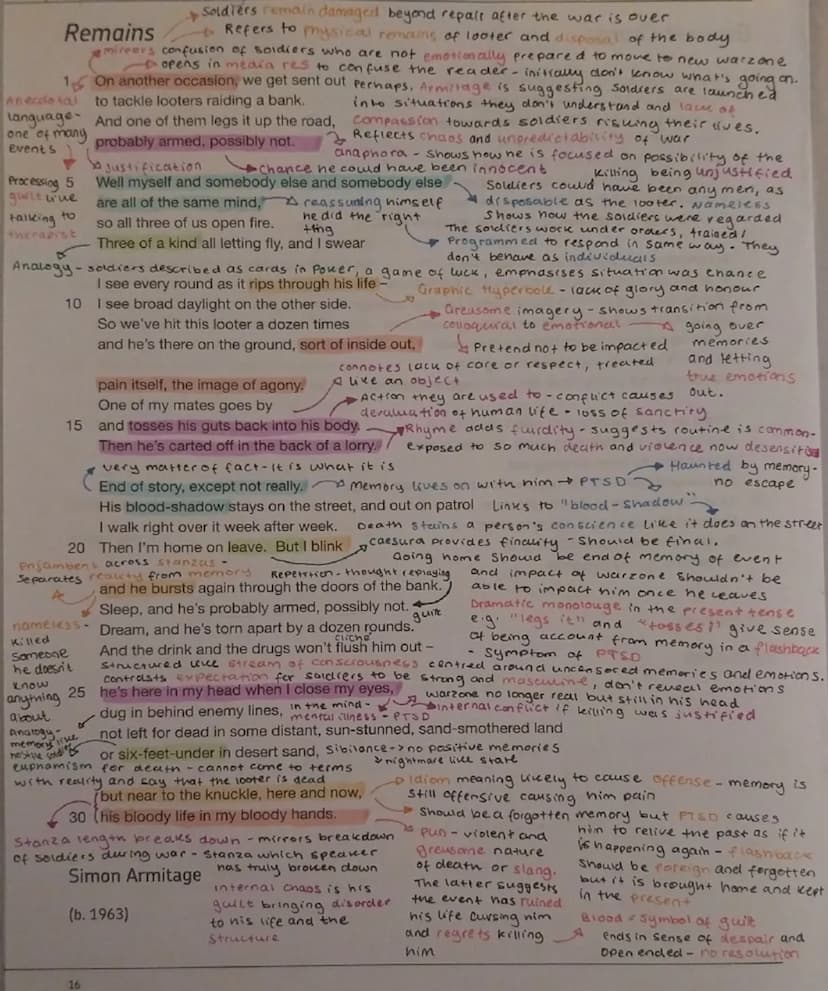 Remains
Soldiers remain damaged beyond repair after the war is over
Refers to physical remains of looter and disposal of the body
mirrors confusion of soldiers who are not emotionally prepared to move to new warzone
opens in media res to confuse the reader - initially don't know what's going on.
Perhaps, Armitage is suggesting soldiers are launched
into situations they don't understand and lack of
compassion towards soldiers risking their lives.
Reflects chaos and unpredictability of war
Anecdotal
language -
one of many
events
1 On another occasion, we get sent out
to tackle looters raiding a bank.
And one of them legs it up the road,
probably armed, possibly not.
anaphora - shows how he is focused on possibility of the
killing being unjustified
justification
chance he could have been innocent
Processing
guilt like
talking to
therapist
5 Well myself and somebody else and somebody else
are all of the same mind,
so all three of us open fire.
Three of a kind all letting fly, and I swear
reassuring himself
he did the right
thing
Soldiers could have been any men, as
disposable as the looter. Nameless
shows how the soldiers were regarded
The soldiers work under orders, trained/
Programmed to respond in same way. They
don't behave as individuals
Analogy - soldiers described as cards in Poker, a game of luck, emphasises situation was chance
I see every round as it rips through his life –
10 I see broad daylight on the other side.
So we've hit this looter a dozen times
and he's there on the ground, sort of inside out,
Graphic Hyperbole - lack of glory and honour
Greusome imagery - shows transition from
colloquial to emotional
going over
memories
and letting
true emotions
out.
Pretend not to be impacted
connotes lack of care or respect, treated
like an object
pain itself, the image of agony.
One of my mates goes by
15 and tosses his guts back into his body.
Then he's carted off in the back of a lorry.
Action they are used to - conflict causes
devaluation of human life - loss of sanctity
Rhyme adds fluidity - suggests routine is common -
exposed to so much death and violence now desensitised
very matter of fact - It is what it is
End of story, except not really.
His blood-shadow stays on the street, and out on patrol
I walk right over it week after week.
20 Then I'm home on leave. But I blink
Memory lives on with him → PTSD
Haunted by memory -
no escape
Links to "blood-shadow"
Death stains a person's conscience like it does on the street
caesura provides finality - Should be final.
Going home should be end of memory of event
and impact of warzone shouldn't be
able to impact him once he leaves
Enjambent across stanzas -
Separates reality from memory
Repetition - thought replaying
and he bursts again through the doors of the bank.
Sleep, and he's probably armed, possibly not.
Dream, and he's torn apart by a dozen rounds.
And the drink and the drugs won't flush him out –
guilt
cliche
Dramatic monolouge in the present tense
e.g. "legs it" and "tosses" give sense
of being account from memory in a flashback
- Symptom of PTSD
nameless -
killed
someone
he doesn't
know
anything
about
structured like stream of consciousness centred around uncensored memories and emotions.
contrasts expectation for soldiers to be strong and masculine, don't reveal emotions
25 he's here in my head when I close my eyes,
dug in behind enemy lines,
not left for dead in some distant, sun-stunned, sand-smothered land
or six-feet-under in desert sand,
in the mind -
mental illness - PTSD
warzone no longer real but still in his head
internal conflict if killing was justified
Analogy -
memory like
Sibilance -> no positive memories
nightmare like state
euphamism for death - cannot come to terms
with reality and say that the looter is dead
but near to the knuckle, here and now,
30 his bloody life in my bloody hands.
Idiom meaning likely to cause offense - memory is
still offensive causing him pain
Should be a forgotten memory but PTSD causes
him to relive the past as if it
is happening again - flashback
Should be foreign and forgotten
but it is brought home and kept
in the present
Stanza length breaks down - mirrors breakdown
of soldiers during war - Stanza which speaker
has truly broken down
internal chaos is his
guilt bringing disorder
to his life and the
structure
pun - violent and
greusome nature
of death or slang.
The latter suggests
the event has ruined
his life cursing him
and regrets killing
him
Blood = symbol of guilt
ends in sense of despair and
open ended - no resolution
Simon Armitage
(b. 1963)
16